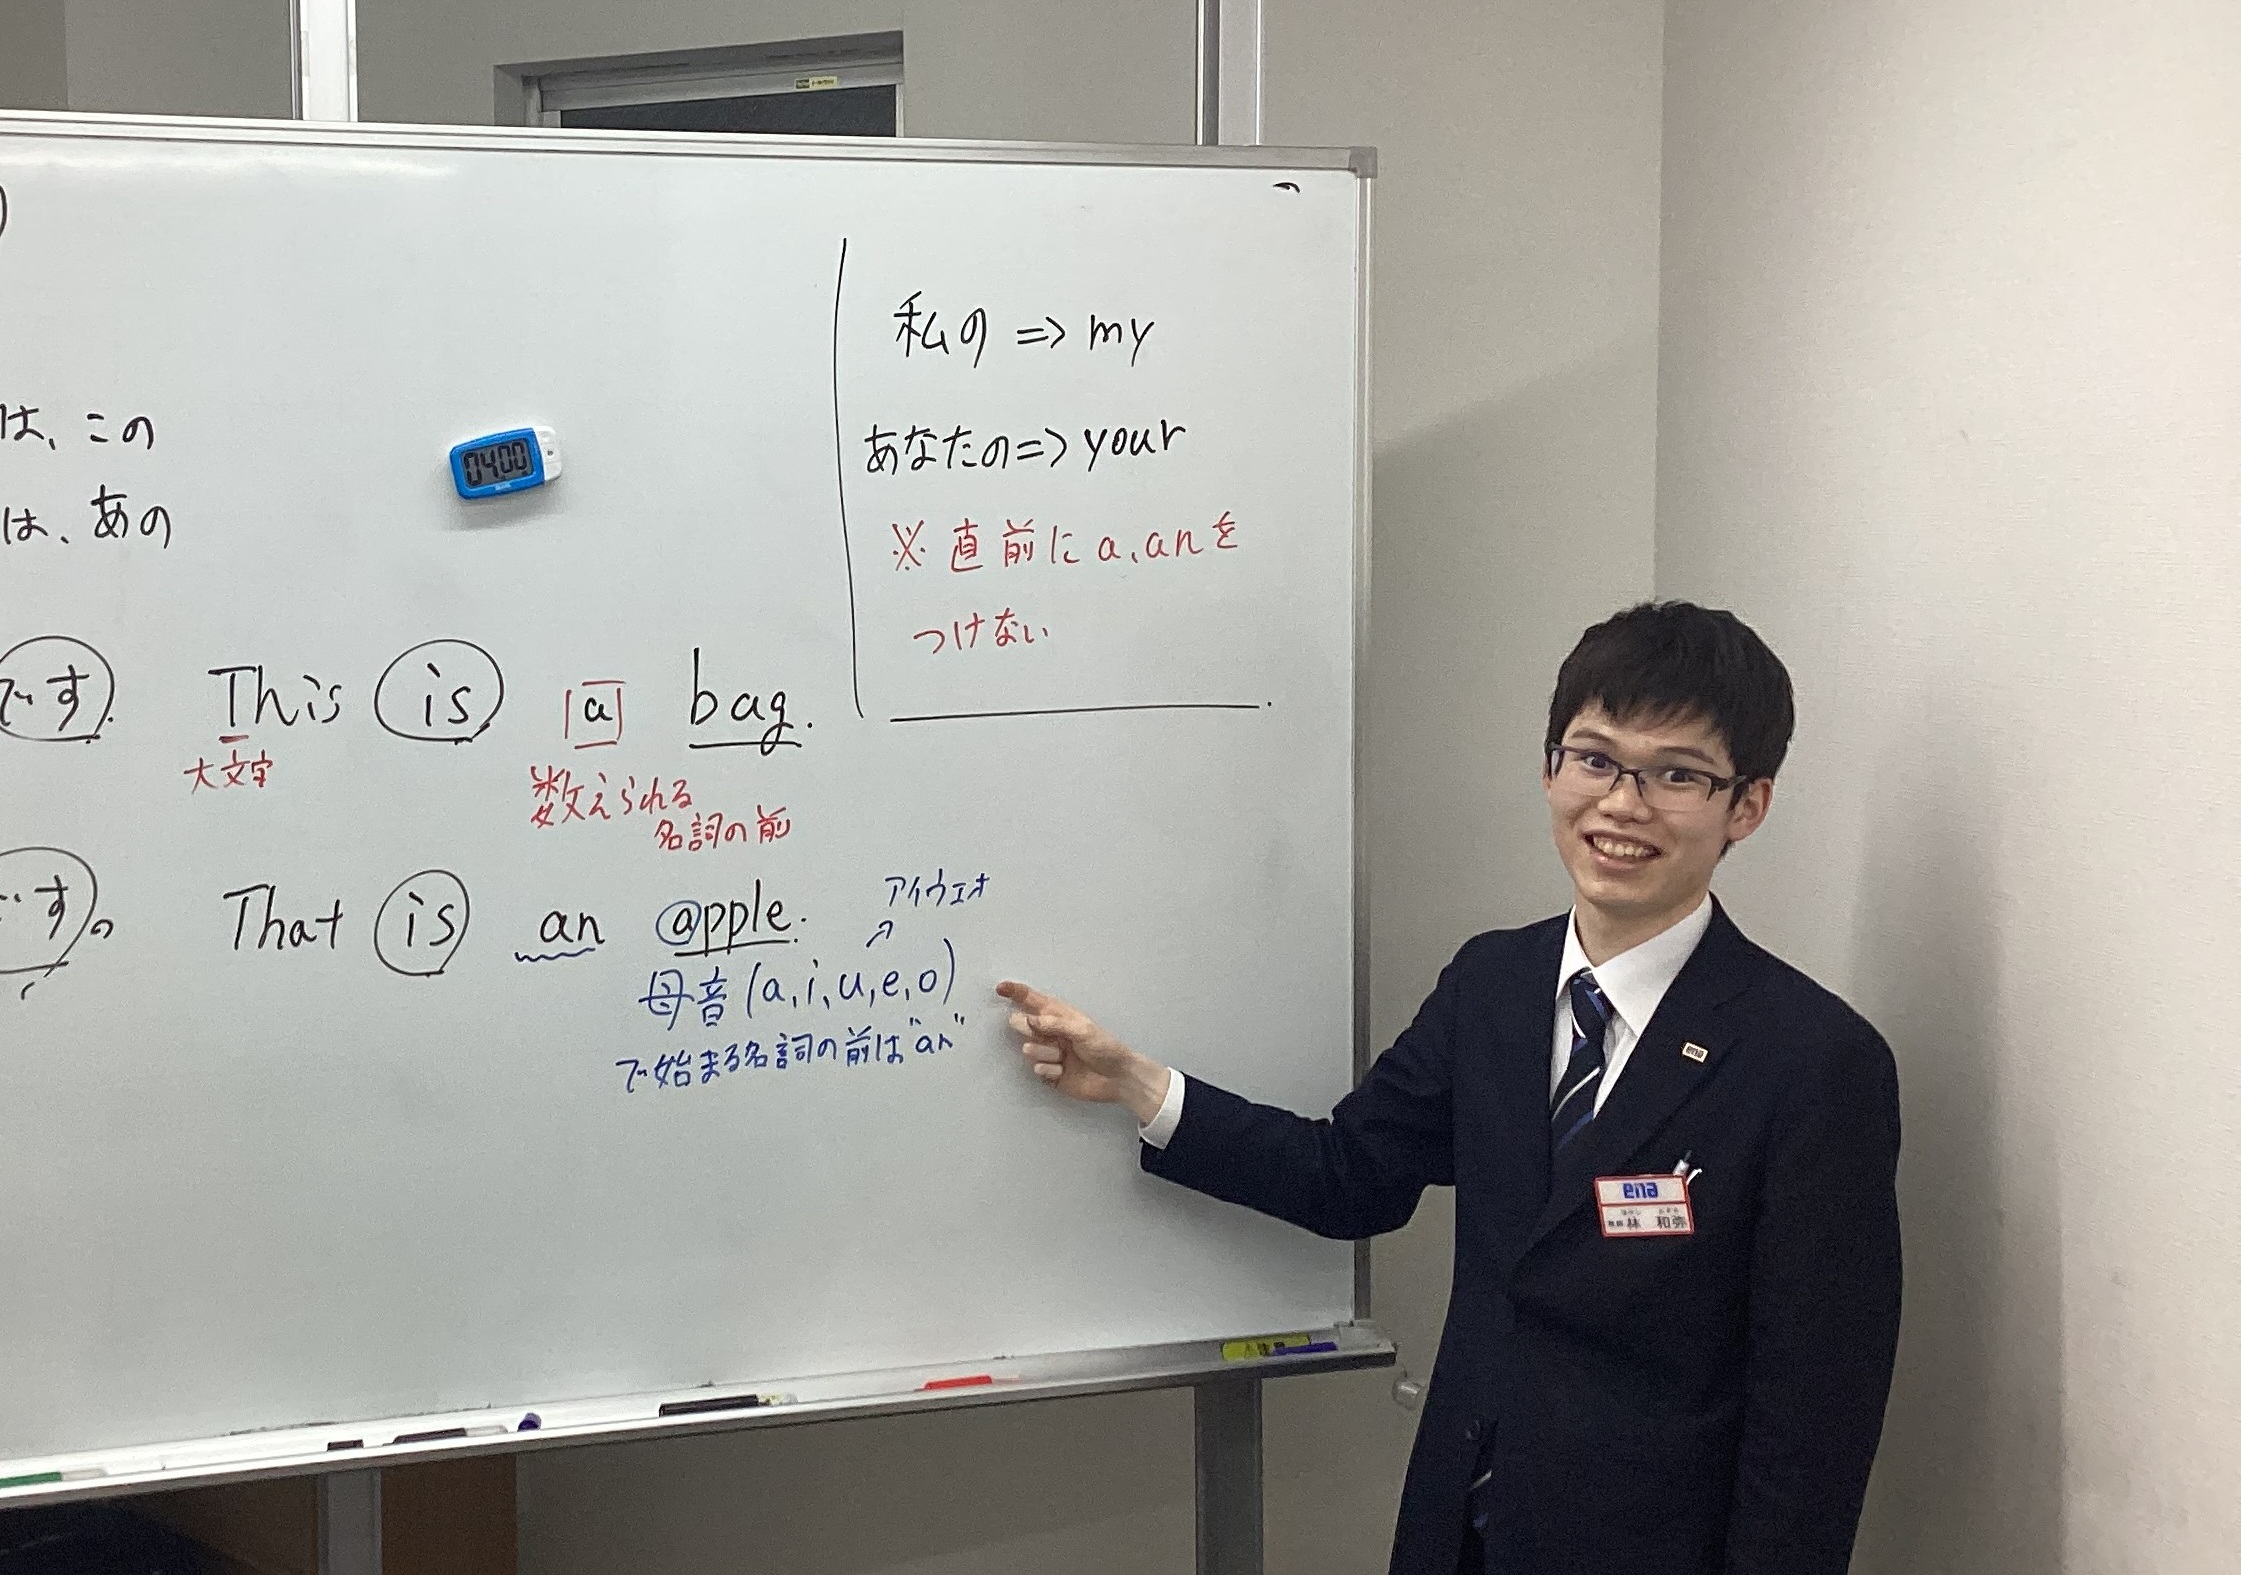 は、この
は、あの
04:00
私の => my
あなたの => your
※直前にa、anを
つけない
です. This is a bag.
大文字
数えられる
名詞の前
です。 That is an apple.
アイウエオ
母音(a,i,u,e,o)
で始まる名詞の前は"an"
ena
ena
林 和弥